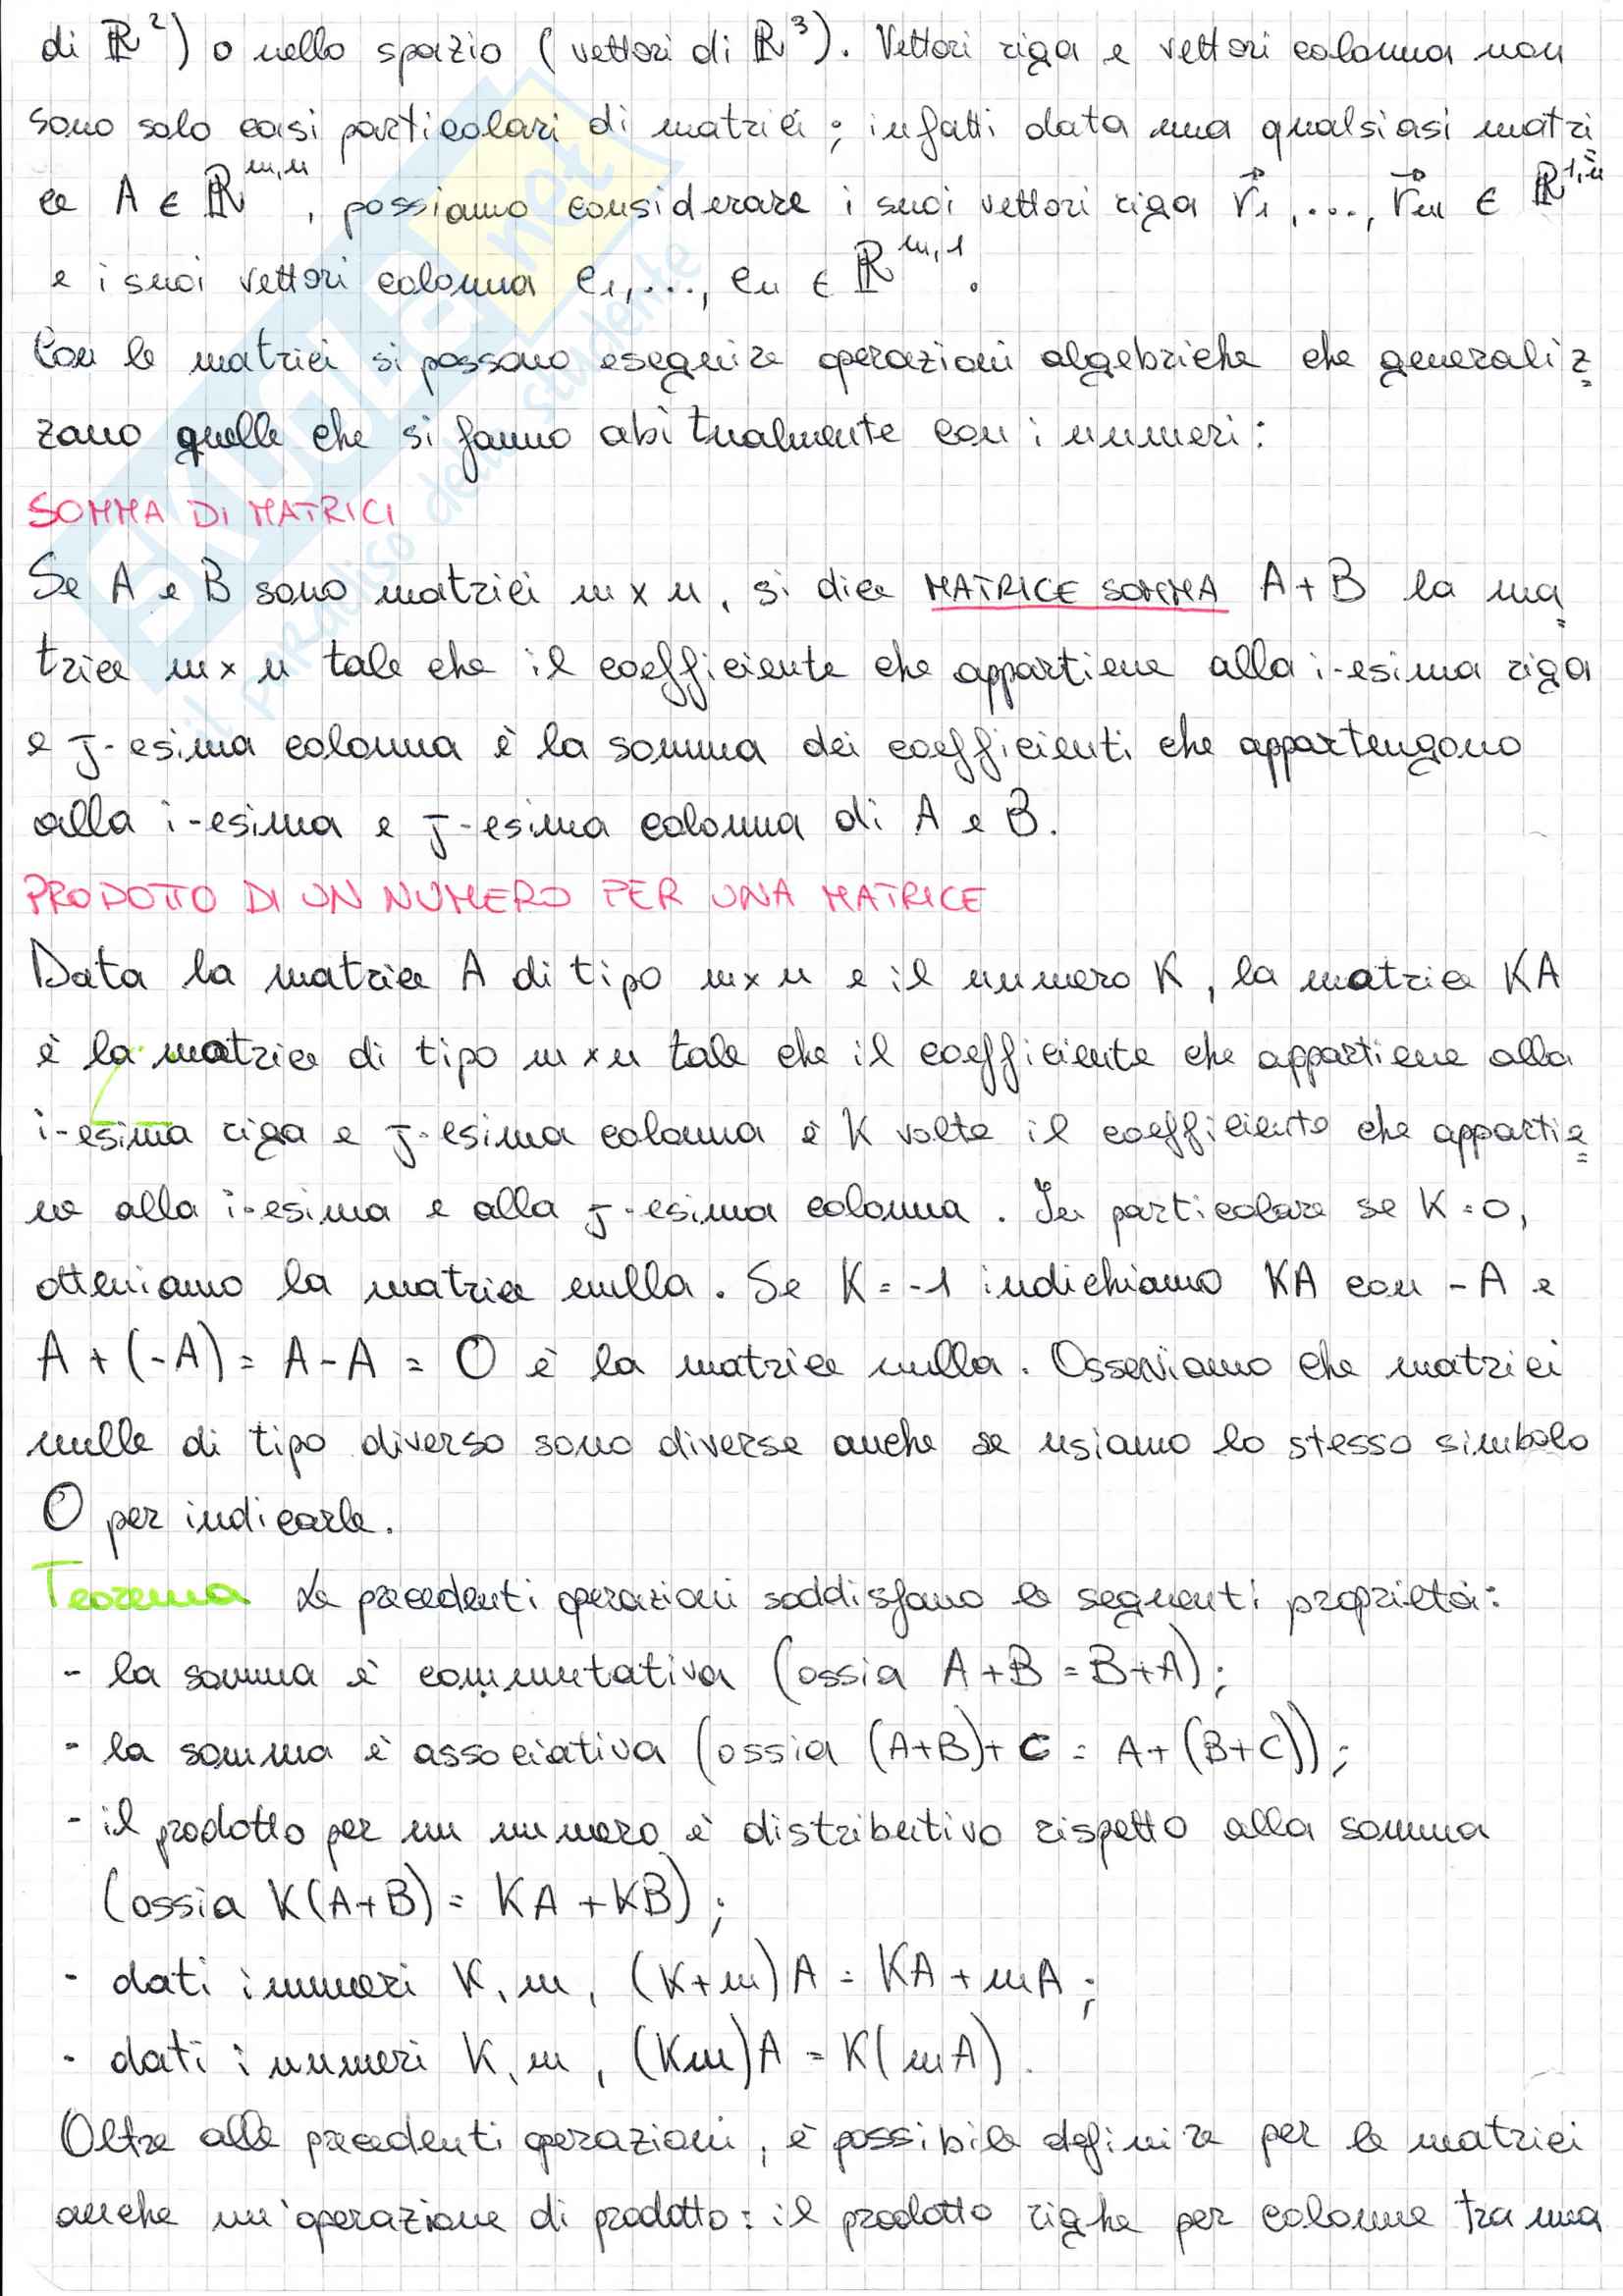 di ℝ²) o nello spazio (vettori di ℝ³). Vettori riga e vettori colonna non
sono solo casi particolari di matrici; infatti data una qualsiasi matri
ce A ∈ ℝ^m,n, possiamo considerare i suoi vettori riga r⃗₁,..., r⃗ₘ ∈ ℝ^1,n
e i suoi vettori colonna c₁,..., cₙ ∈ ℝ^m,1.
Con le matrici si possono eseguire operazioni algebriche che generaliz=
zano quelle che si fanno abitualmente con i numeri:
SOMMA DI MATRICI
Se A e B sono matrici m x n, si dice MATRICE SOMMA A+B la ma=
trice m x n tale che il coefficiente che appartiene alla i-esima riga
e J-esima colonna è la somma dei coefficienti che appartengono
alla i-esima e J-esima colonna di A e B.
PRODOTTO DI UN NUMERO PER UNA MATRICE
Data la matrice A di tipo m x n e il numero K, la matrice KA
è la matrice di tipo m x n tale che il coefficiente che appartiene alla
i-esima riga e J-esima colonna è K volte il coefficiente che appartie=
ne alla i-esima e alla J-esima colonna. In particolare se K=0,
otteniamo la matrice nulla. Se K=-1 indichiamo KA con -A e
A+(-A)= A-A = O è la matrice nulla. Osserviamo che matrici
nulle di tipo diverso sono diverse anche se usiamo lo stesso simbolo
O per indicarle.
Teorema Le precedenti operazioni soddisfano le seguenti proprietà:
- la somma è commutativa (ossia A+B=B+A);
- la somma è associativa (ossia (A+B)+C = A+(B+C));
- il prodotto per un numero è distributivo rispetto alla somma
(ossia K(A+B)= KA+KB);
- dati i numeri K,m, (K+m)A = KA+mA;
- dati i numeri K,m, (Km)A = K(mA).
Oltre alle precedenti operazioni, è possibile definire per le matrici
anche un'operazione di prodotto: il prodotto righe per colonne tra una
SKUOLA.not
il paradiso dello studente